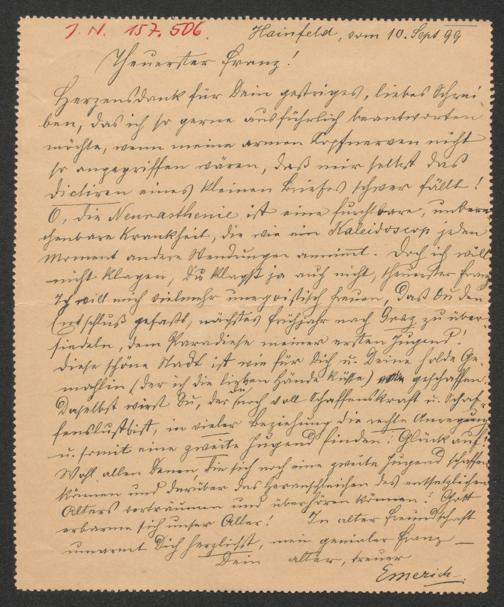 J. N. 157.506.
Hainfeld, vom 10. Sept 99
Theuerster Franz!
Herzensdank für Dein gestriges, liebes Schrei-
ben, das ich so gerne ausführlich beantworten
möchte, wenn meine armen Kopfnerven nicht
so angegriffen wären, daß mir selbst das
Dictiren eines kleinen Briefes schwer fällt!
O, die Neurasthenie ist eine furchtbare, unbere-
chenbare Krankheit, die wie ein Kaleidoscop jeden
Moment andere Wendungen annimmt. Doch ich will
nicht klagen, Du klagst ja auch nicht, theuerster Franz
Ich will mich vielmehr unegoistisch freuen, daß Du den
Entschluß gefaßt, nächstes Frühjahr nach Graz zu über-
siedeln, dem Paradiese meiner ersten Jugend!
Diese schöne Stadt ist wie für Dich u. Deine holde Ge-
mahlin (der ich die Hände küsse) geschaffen.
Daselbst wirst Du, der noch voll Schaffenskraft u. Schaf-
fenslust bist, in vieler Beziehung die rechte Anregung
u. somit eine zweite Jugend finden! Glück auf!
Wohl allen Denen, die sich noch eine zweite Jugend schaffen
können und darüber das Heranschleichen des entsetzlichen
Alters verträumen und überhören können! Gott
erbarme sich unser Aller! In alter Freundschaft
umarmt Dich herzlichst, mein genialer Franz —
Dein alter, treuer
Emerich.